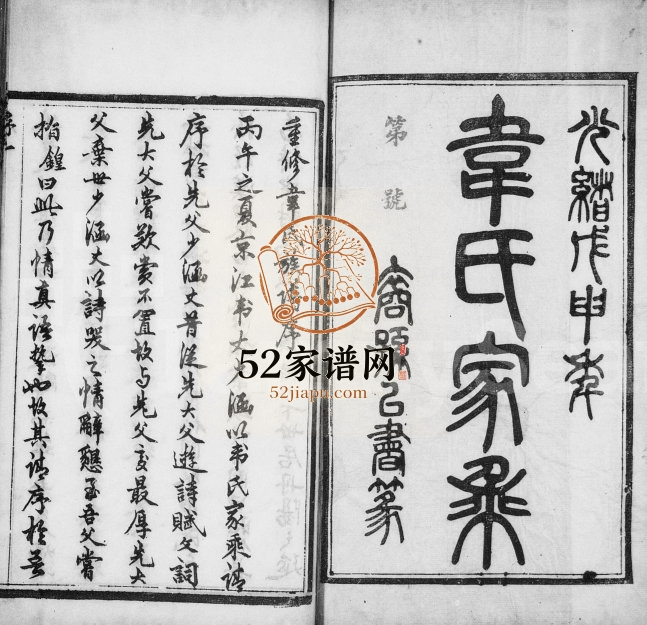 光緒戊申年
韋氏家乘
第 號
書篆
重修韋氏族譜序
丙午之夏京江韦丈少涵以韦氏家乘請
序於先父少涵丈昔從先大父遊詩賦文詞
先大父嘗歎賞不置故与先父交最厚先大
父棄世少涵丈以詩哭之情辭懇至吾父嘗
指鍠曰此乃情真語摯也故其請序於吾
序一
52家谱网
52jiapu.com